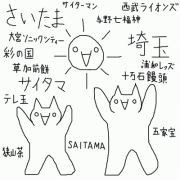 サイターマン
西武ライオンズ
さいたま
与野七福神
大宮ソニックシティー
埼玉
彩の国
浦和レッズ
草加煎餅
サイタマ
十万石饅頭
テレ玉
SAITAMA
五家宝
狭山茶